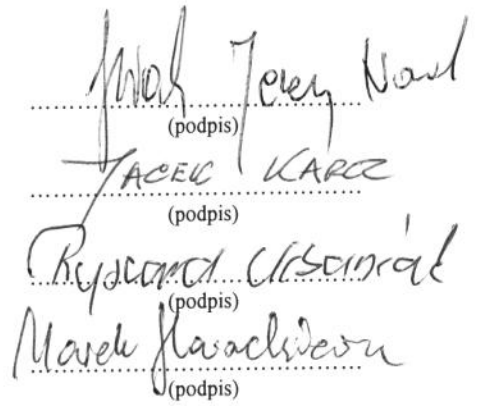 Jerzy
(podpis)
JACEK KARCZ
(podpis)
Ryszard Urbaniak
(podpis)
Marek
(podpis)